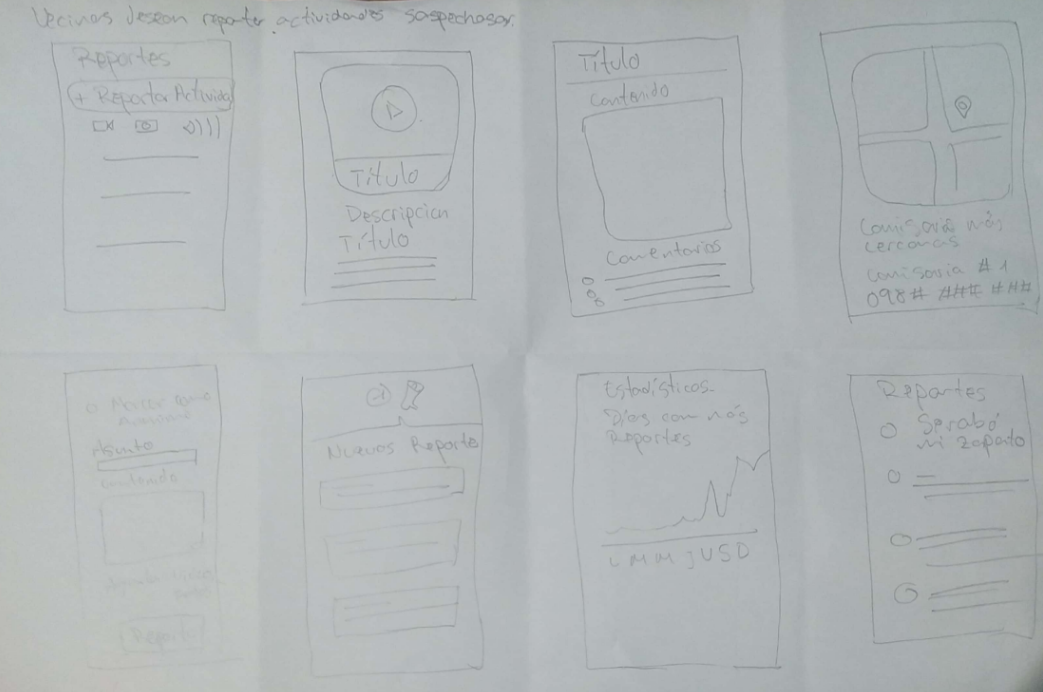 Vecinos desean reportar actividades sospechosas.
Reportes
+ Reportar Activida
Título
Descripcion
Título
Título
Contenido
Comentarios
Comisarias más
cercanas
Comisaria # 1
098# ### ###
Asunto
Contenido
Report
Nuevos Reporte
Estadísticas
Días con más
Reportes
L M M J V S D
Reportes
Se robó
mi zapato